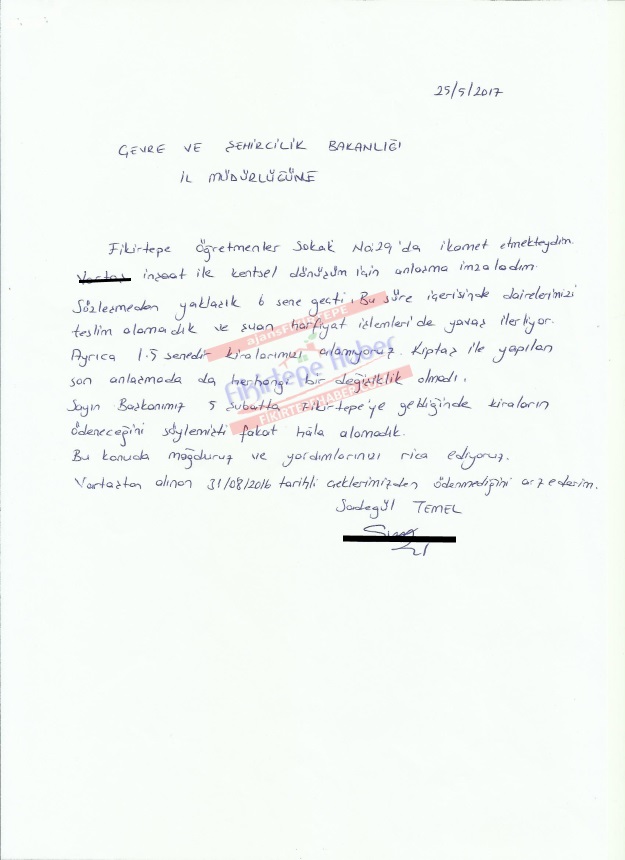 25/5/2017
ÇEVRE VE ŞEHİRCİLİK BAKANLIĞI
İL MÜDÜRLÜĞÜNE
Fikirtepe Öğretmenler Sokak No:29'da ikamet etmekteydim.
inşaat ile kentsel dönüşüm için anlaşma imzaladım.
Sözleşmeden yaklaşık 6 sene geçti. Bu süre içerisinde dairelerimizi
teslim alamadık ve şuan harfiyat işlemleri'de yavaş ilerliyor.
Ayrıca 1.5 senedir kiralarımızı alamıyoruz. Kiptaş ile yapılan
son anlaşmada da herhangi bir değişiklik olmadı.
Sayın Başkanımız 5 Şubatta Fikirtepe'ye geldiğinde kiraların
ödeneceğini söylemişti fakat hâla alamadık.
Bu konuda mağduruz ve yardımlarınızı rica ediyoruz.
Vartaştan alınan 31/08/2016 tarihli çeklerimizden ödenmediğini arz ederim.
Sadegül TEMEL
ajansFİKİRTEPE
fikirtepe haber